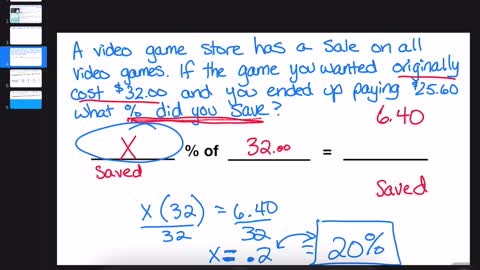 A video game store has a sale on all
video games. If the game you wanted originally
cost $32.00 and you ended up paying $25.60
what % did you save?
6.40
X % of 32.00 =
Saved
Saved
X (32) = 6.40
32 32
X = .2
= 20%